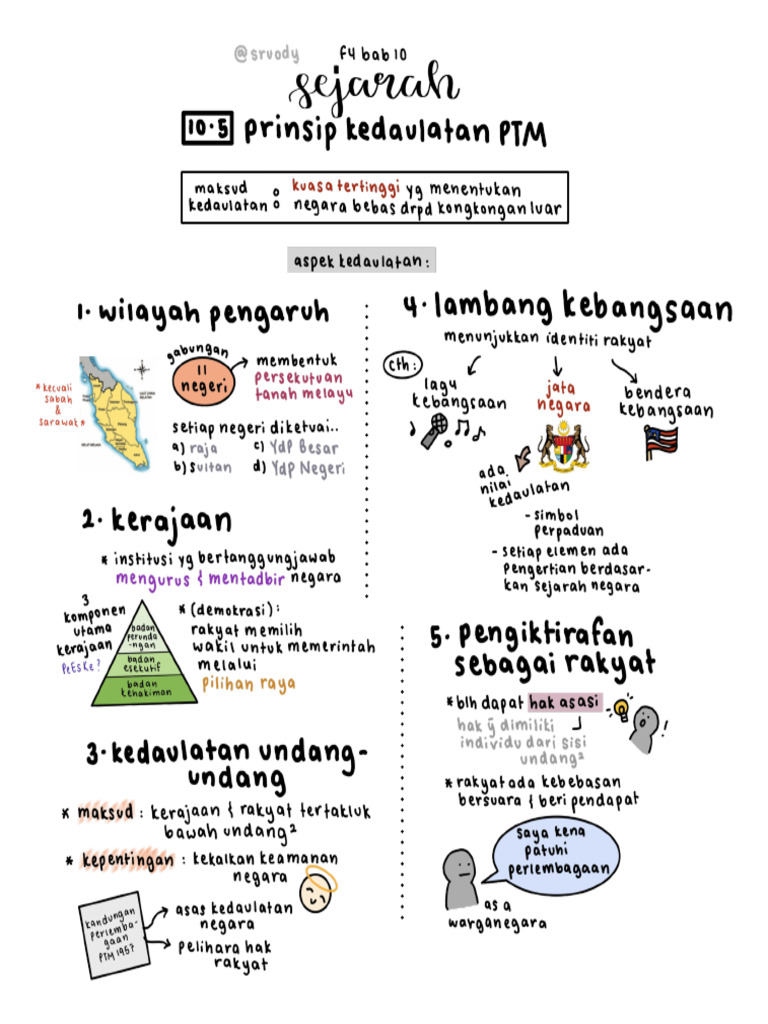 @srvody
F4 bab 10
sejarah
10.5 prinsip kedaulatan PTM
maksud kedaulatan : kuasa tertinggi yg menentukan
negara bebas drpd kongkongan luar
aspek kedaulatan :
1. wilayah pengaruh
* kecuali
sabah
&
sarawak *
gabungan
11
negeri
membentuk
persekutuan
tanah melayu
setiap negeri diketuai..
a) raja c) YdP Besar
b) sultan d) YdP Negeri
2. kerajaan
* institusi yg bertanggungjawab
mengurus & mentadbir negara
3
komponen
utama
kerajaan
PeEsKe?
badan
perunda
-ngan
badan
esekutif
badan
kehakiman
* (demokrasi) :
rakyat memilih
wakil untuk memerintah
melalui
pilihan raya
3. kedaulatan undang-
undang
* maksud : kerajaan & rakyat tertakluk
bawah undang²
* kepentingan : kekalkan keamanan
negara
kandungan
perlemba-
gaan
PTM 1957
asas kedaulatan
negara
pelihara hak
rakyat
4. lambang kebangsaan
menunjukkan identiti rakyat
cth :
lagu
kebangsaan
jata
negara
bendera
kebangsaan
ada
nilai
kedaulatan
- simbol
perpaduan
- setiap elemen ada
pengertian berdasar-
kan sejarah negara
5. pengiktirafan
sebagai rakyat
* blh dapat hak asasi
hak ÿ dimiliki
individu dari sisi
undang²
!
* rakyat ada kebebasan
bersuara & beri pendapat
saya kena
patuhi
perlembagaan
as a
warganegara